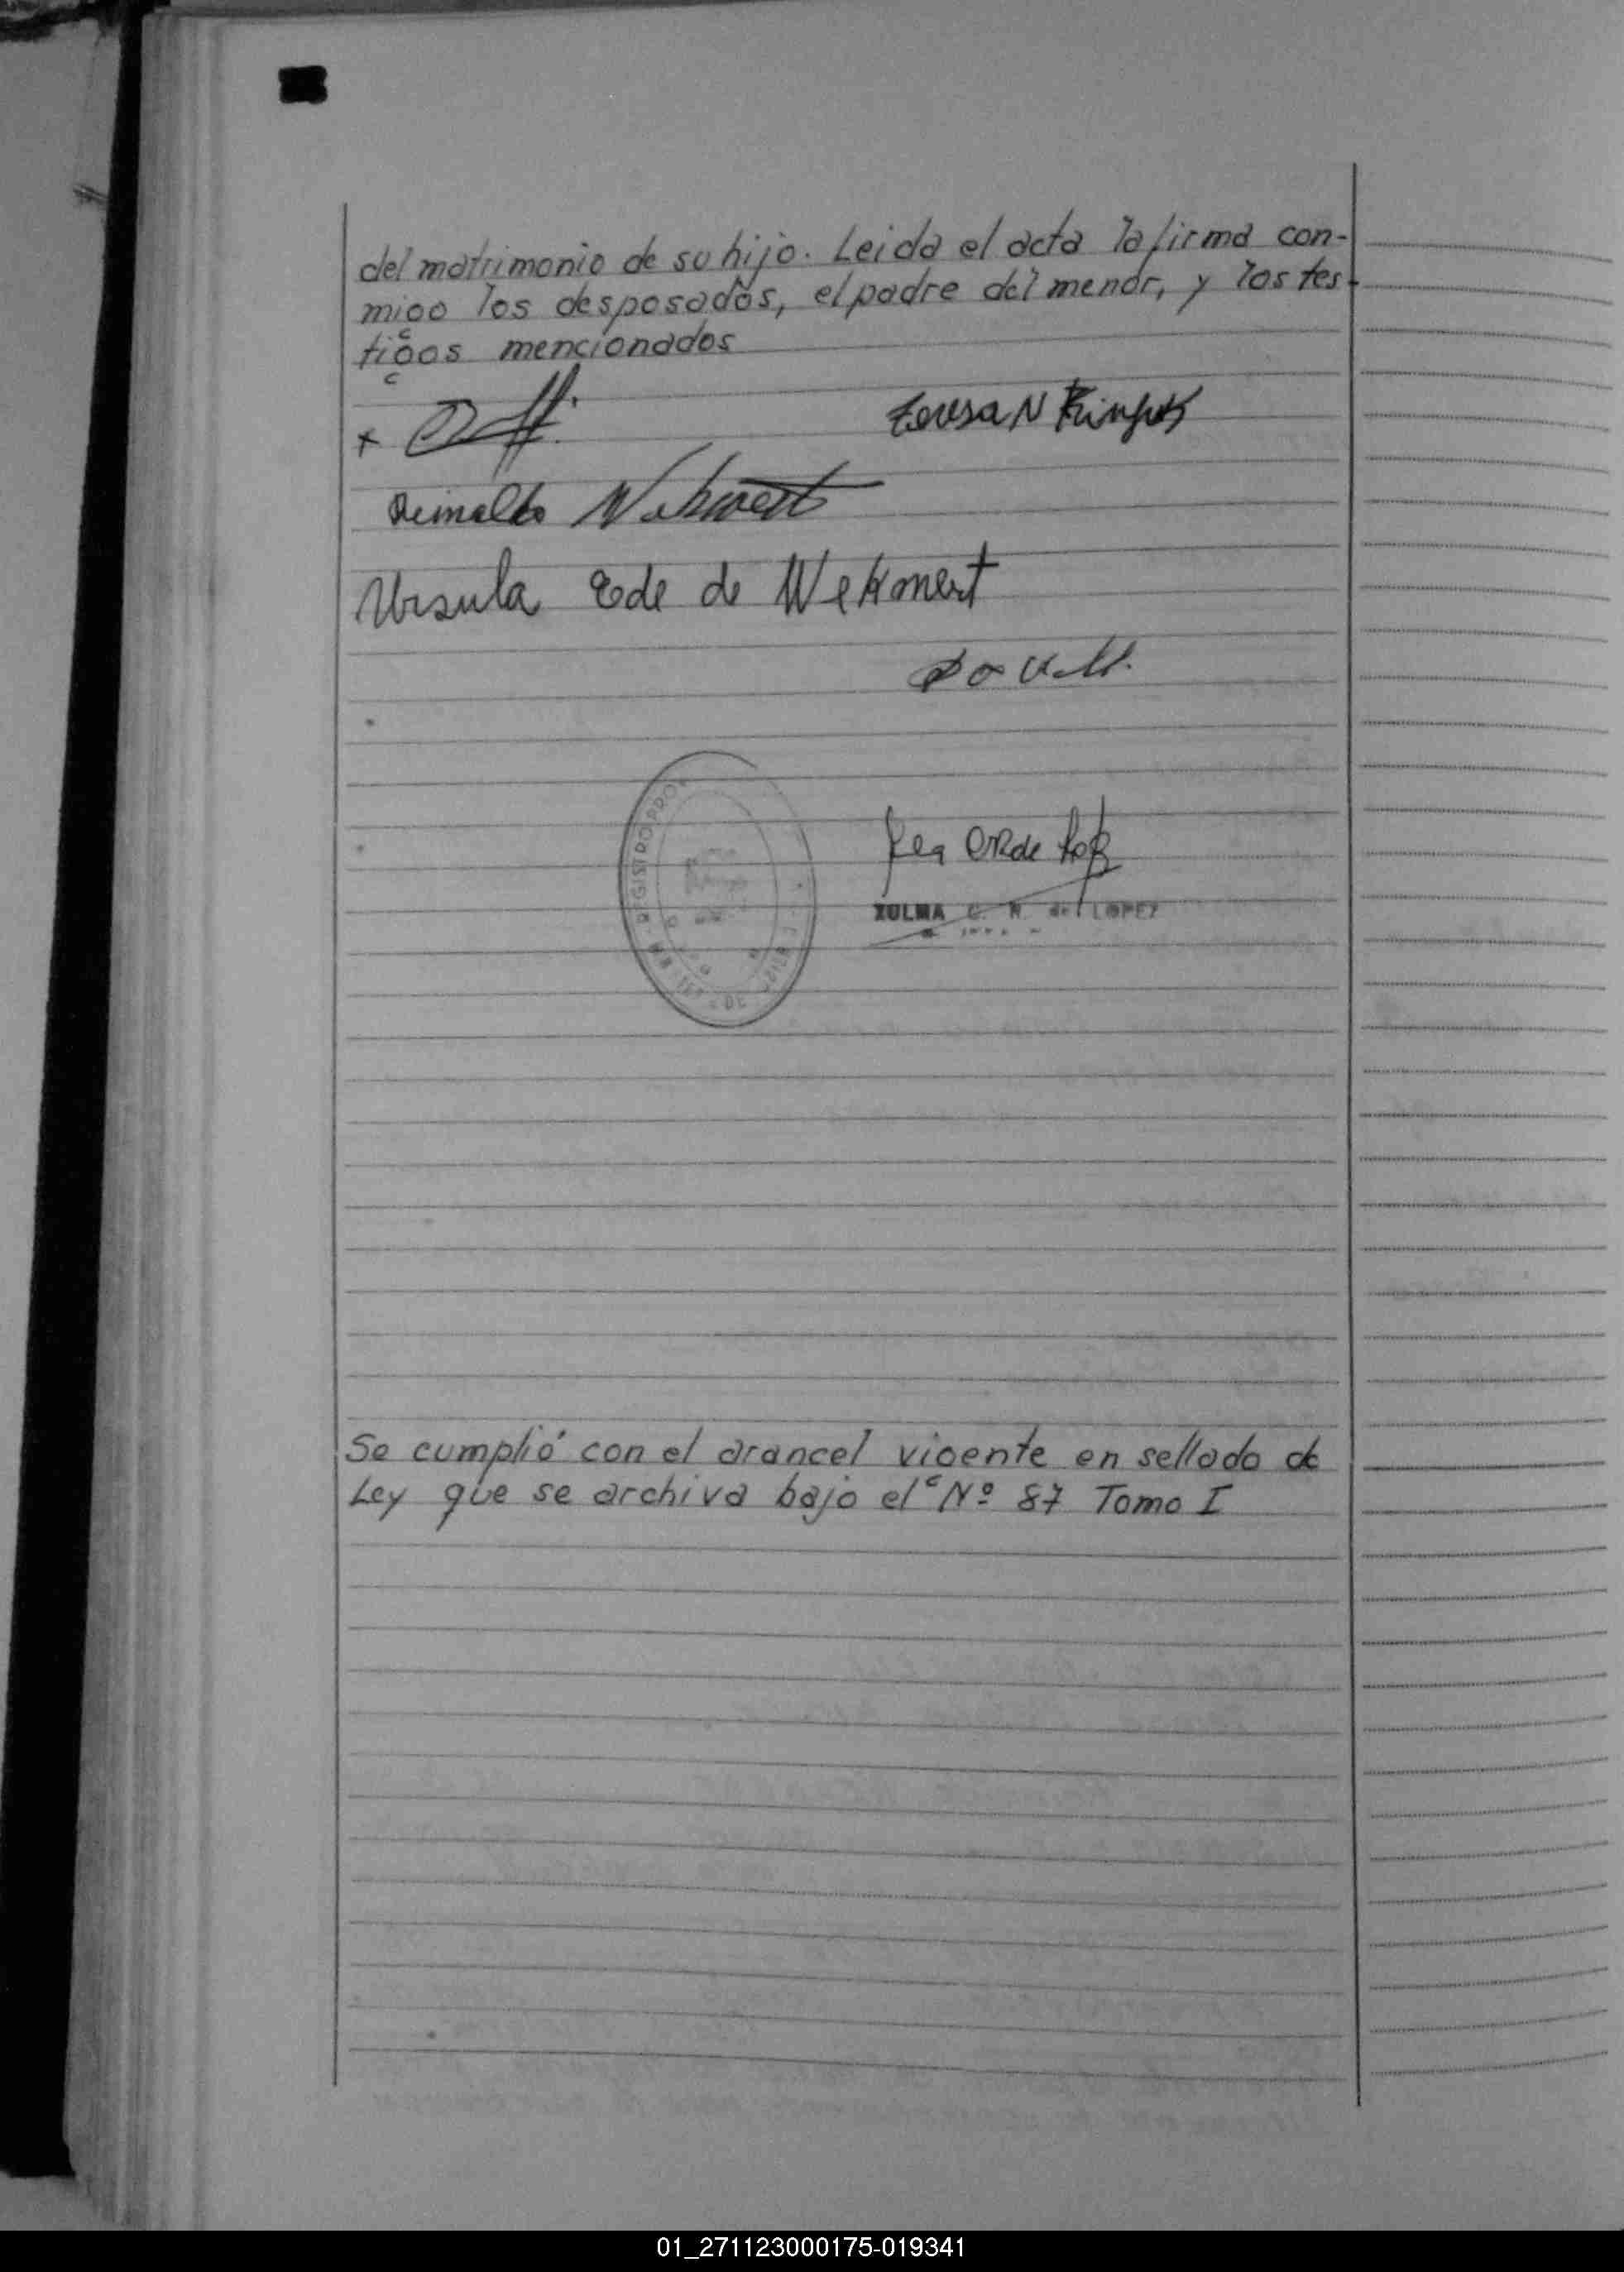 del matrimonio de su hijo. Leida el acta la firma con-
migo los desposados, el padre del menor, y los tes-
tigos mencionados
Teresa N
Reinaldo
Ursula Ede de Wekonert
ZULMA C. N. de LOPEZ
REGISTRO PRO
DE
Se cumplió con el arancel vigente en sellado de
Ley que se archiva bajo el Nº 87 Tomo I
01_271123000175-019341